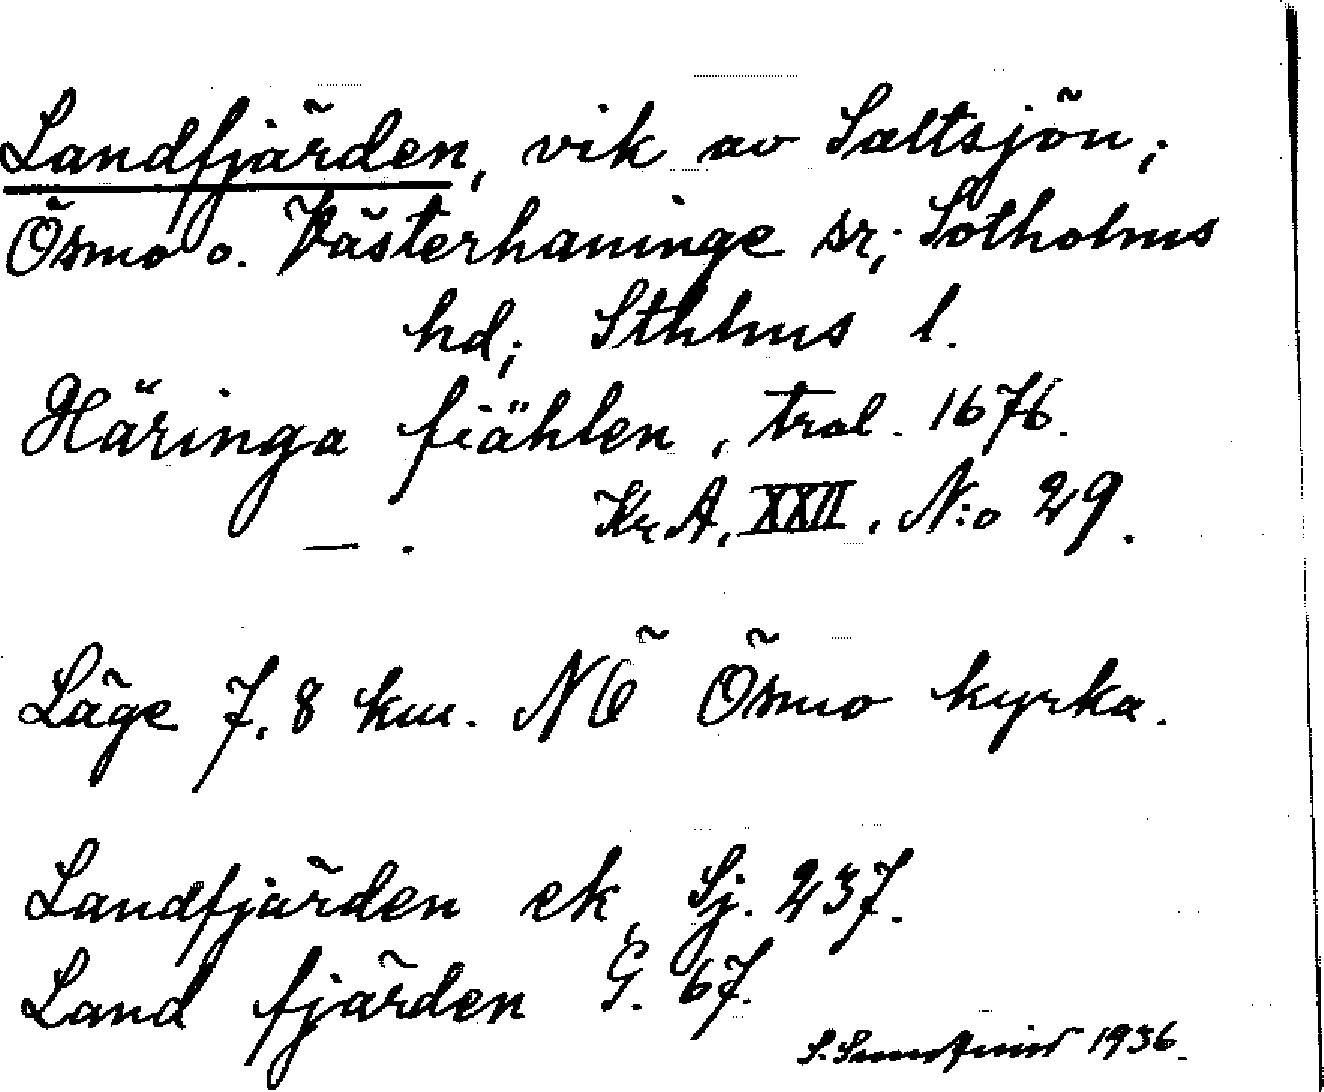 Landfjärden, vik av Saltsjön;
Ösmo o. Västerhaninge sr; Sotholms
hd; Sthlms l.
Häringa fiählen, tral. 1676.
Kr.A. XXII. N:o 29.
— .
Läge 7,8 km. NÖ Ösmo kyrka.
Landfjärden ek, Sj. 237.
Land fjärden G. 67.
S. 1936.